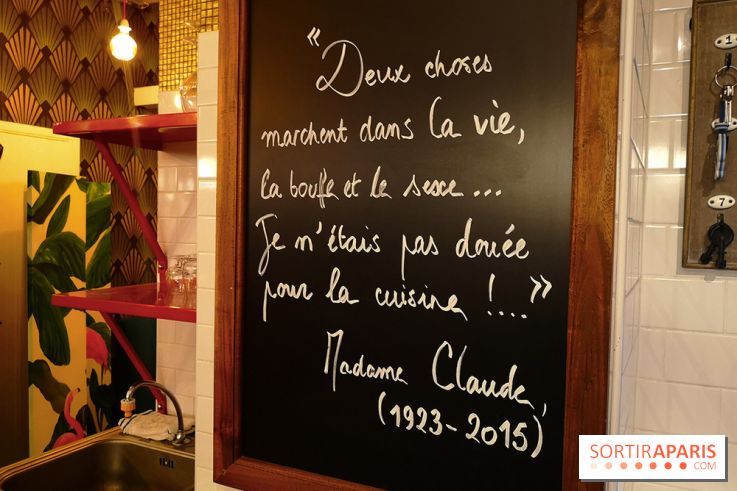 “Deux choses
marchent dans la vie,
la bouffe et le sexe...
Je n'étais pas douée
pour la cuisine !....”
Madame Claude,
(1923-2015)
1
7
SORTIRAPARIS
.COM